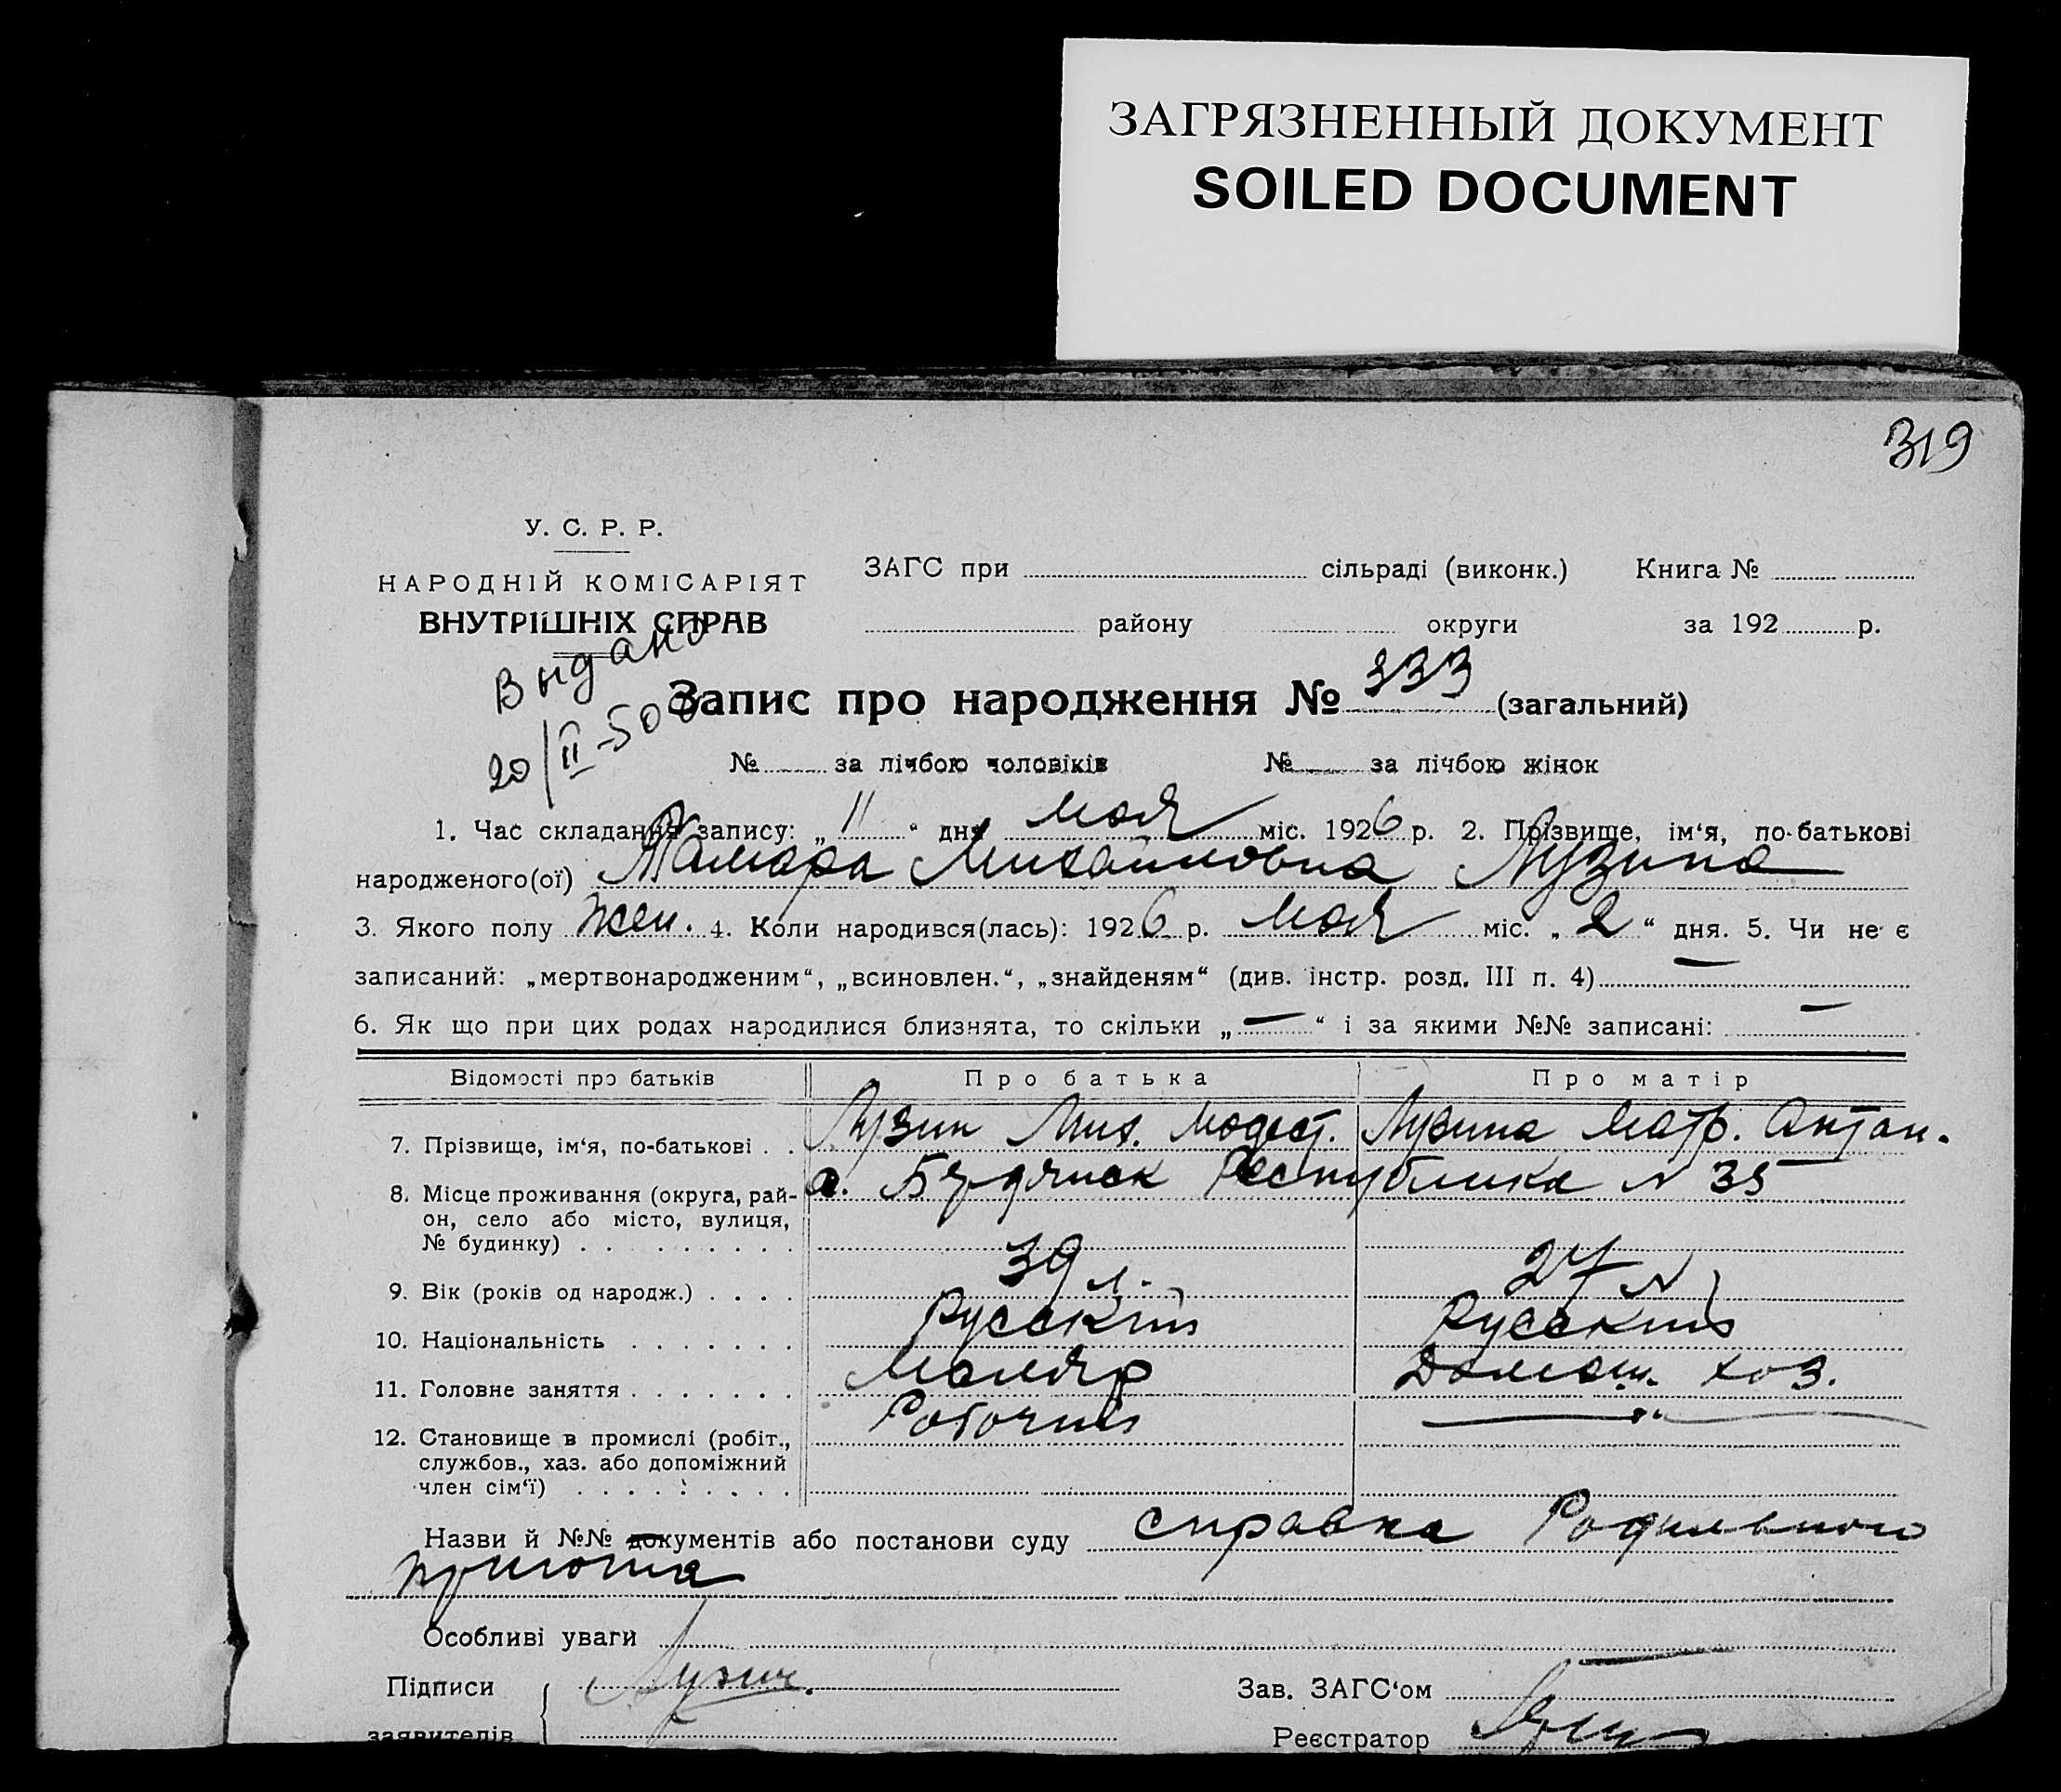 ЗАГРЯЗНЕННЫЙ ДОКУМЕНТ
SOILED DOCUMENT
319
У. С. Р. Р.
НАРОДНІЙ КОМІСАРІЯТ
ВНУТРІШНІХ СПРАВ
ЗАГС при сільраді (виконк.) Книга №
району округи за 192 р.
Выдано
20/II-50
Запис про народження № 333 (загальний)
№ за лічбою чоловіків № за лічбою жінок
1. Час складання запису: „11“ дня мая міс. 1926 р. 2. Прізвище, ім‘я, по-батькові
народженого(ої) Тамара Михайловна Лузина
3. Якого полу жен. 4. Коли народився(лась): 1926 р. мая міс. „2“ дня. 5. Чи не є
записаний: „мертвонародженим“, „всиновлен.“, „знайденям“ (див. інстр. розд. III п. 4) —
6. Як що при цих родах народилися близнята, то скільки „—“ і за якими №№ записані: —
Відомості про батьків Про батька Про матір
7. Прізвище, ім‘я, по-батькові . . Лузин Мих. Модест. Лузина Матр. Антон.
8. Місце проживання (округа, рай-
он, село або місто, вулиця,
№ будинку) . . . . . . . . . г. Бердянск Республика N 35
9. Вік (років од народж.) . . . . 39 л. 27 л
10. Національність . . . . . . . Русский Русский
11. Головне заняття . . . . . . . Маляр Домаш. хоз.
12. Становище в промислі (робіт.,
службов., хаз. або допоміжний
член сім‘ї) . . . . . . . . . Рабочий —
Назви й №№ документів або постанови суду справка Родильного
приюта
Особливі уваги
Підписи Лузин. Зав. ЗАГС‘ом
заявителів Реєстратор